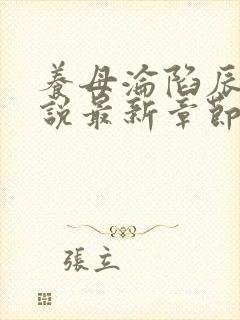 養母淪陷辰
說最新章節
張立